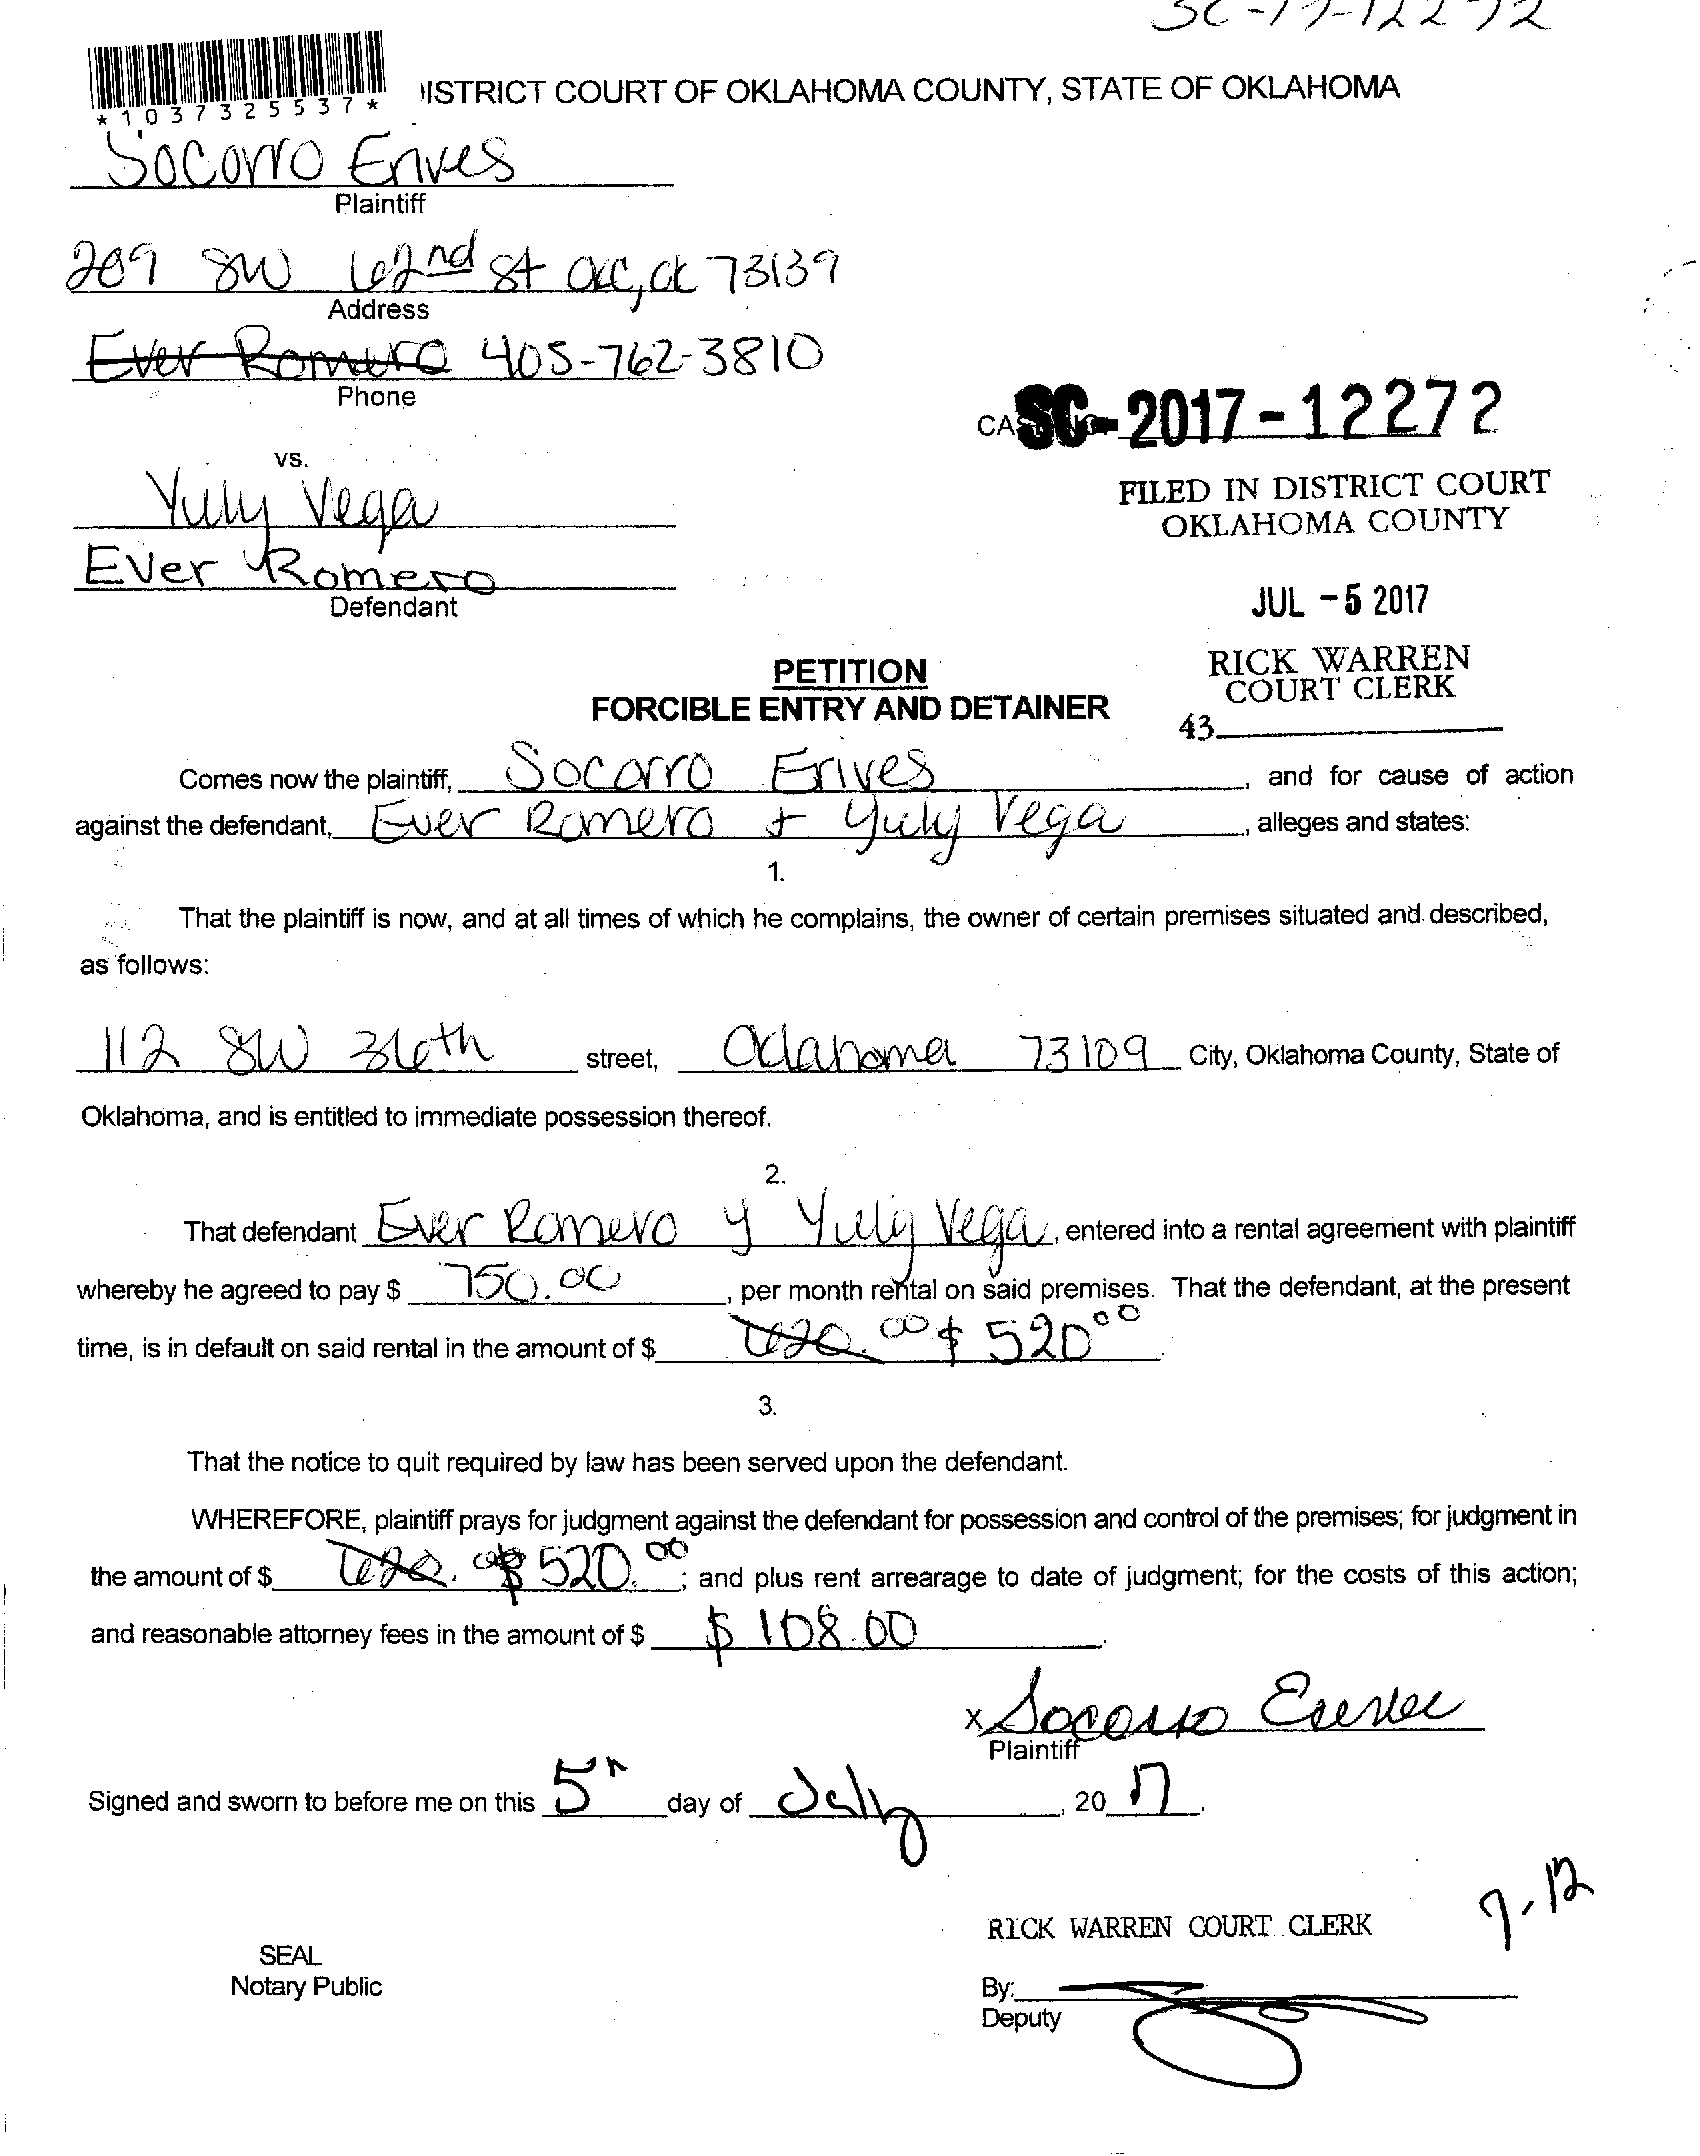 SC-17-12272
*1037325537*
ISTRICT COURT OF OKLAHOMA COUNTY, STATE OF OKLAHOMA
Socorro Erives
Plaintiff
209 SW 62nd St OKC, OK 73139
Address
Ever Romero 405-762-3810
Phone
SC-2017-12272
vs.
FILED IN DISTRICT COURT
OKLAHOMA COUNTY
Yuly Vega
Ever Romero
Defendant
JUL -5 2017
PETITION
FORCIBLE ENTRY AND DETAINER
RICK WARREN
COURT CLERK
43
Comes now the plaintiff, Socorro Erives, and for cause of action
against the defendant, Ever Romero + Yuly Vega, alleges and states:
1.
That the plaintiff is now, and at all times of which he complains, the owner of certain premises situated and described,
as follows:
112 SW 36th street, Oklahoma 73109 City, Oklahoma County, State of
Oklahoma, and is entitled to immediate possession thereof.
2.
That defendant Ever Romero y Yuly Vega, entered into a rental agreement with plaintiff
whereby he agreed to pay $ 750.00, per month rental on said premises. That the defendant, at the present
time, is in default on said rental in the amount of $ 620.00 $ 520 00.
3.
That the notice to quit required by law has been served upon the defendant.
WHEREFORE, plaintiff prays for judgment against the defendant for possession and control of the premises; for judgment in
the amount of $ 620. $ 520.00; and plus rent arrearage to date of judgment; for the costs of this action;
and reasonable attorney fees in the amount of $ $ 108.00.
x Socorro Erives
Plaintiff
Signed and sworn to before me on this 5th day of July, 20 17.
7-12
RICK WARREN COURT CLERK
SEAL
Notary Public
By:
Deputy